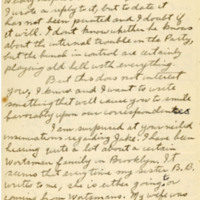 I wrote a reply to it, but to date it
has not been printed and I doubt if
it will. I don't know whether he knows
about the internal trouble in the Party,
but the bunch in control are certainly
playing old hell with everything.
But this does not interest
you, I know and I want to write
something that will cause you to smile
favorably upon our correspondence.
I am surprised at your veiled
insinuations regarding Jake. I have been
hearing quite a lot about a certain
Wortsman family in Brooklyn. It
seems that every time my sister B.D.
writes to me, she is either going or
coming from Wortsmans. My wife was